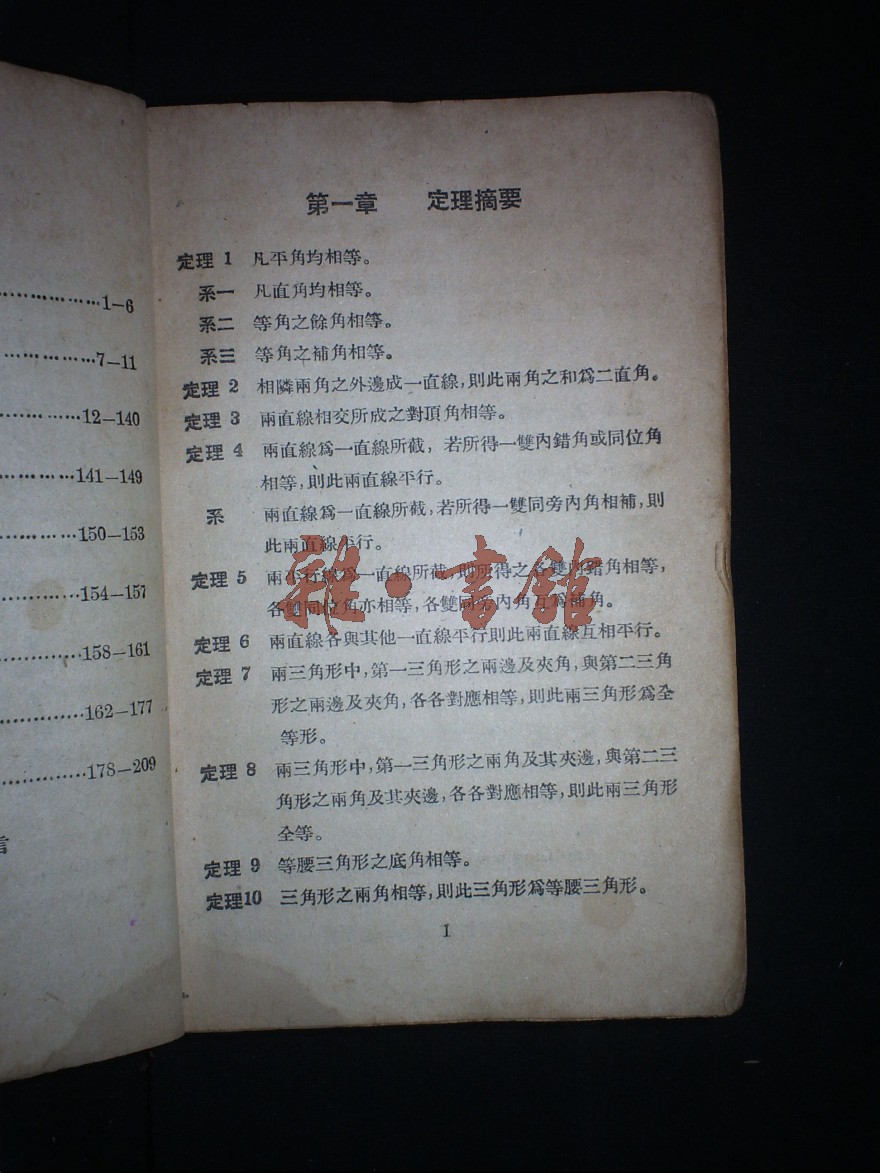 ··················1–6
··················7–11
··············12–140
···············141–149
···············150–153
··············154–157
··············158–161
··············162–177
··············178–209
言
第一章 定理摘要
定理 1 凡平角均相等。
系一 凡直角均相等。
系二 等角之餘角相等。
系三 等角之補角相等。
定理 2 相隣兩角之外邊成一直線,則此兩角之和爲二直角。
定理 3 兩直線相交所成之對頂角相等。
定理 4 兩直線爲一直線所截,若所得一雙內錯角或同位角
相等,則此兩直線平行。
系 兩直線爲一直線所截,若所得一雙同旁內角相補,則
此兩直線平行。
定理 5 兩平行線爲一直線所截,則所得之各雙內錯角相等,
各雙同位角亦相等,各雙同旁內角互爲補角。
定理 6 兩直線各與其他一直線平行則此兩直線互相平行。
定理 7 兩三角形中,第一三角形之兩邊及夾角,與第二三角
形之兩邊及夾角,各各對應相等,則此兩三角形爲全
等形。
定理 8 兩三角形中,第一三角形之兩角及其夾邊,與第二三
角形之兩角及其夾邊,各各對應相等,則此兩三角形
全等。
定理 9 等腰三角形之底角相等。
定理10 三角形之兩角相等,則此三角形爲等腰三角形。
1
雜·書館